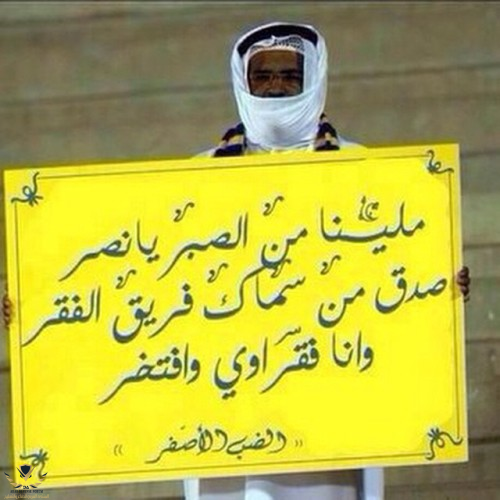 ملينا من الصبر يا نصر
صدق من سماك فريق الفقر
وانا فقراوي وافتخر
(( الضب الأصفر ))